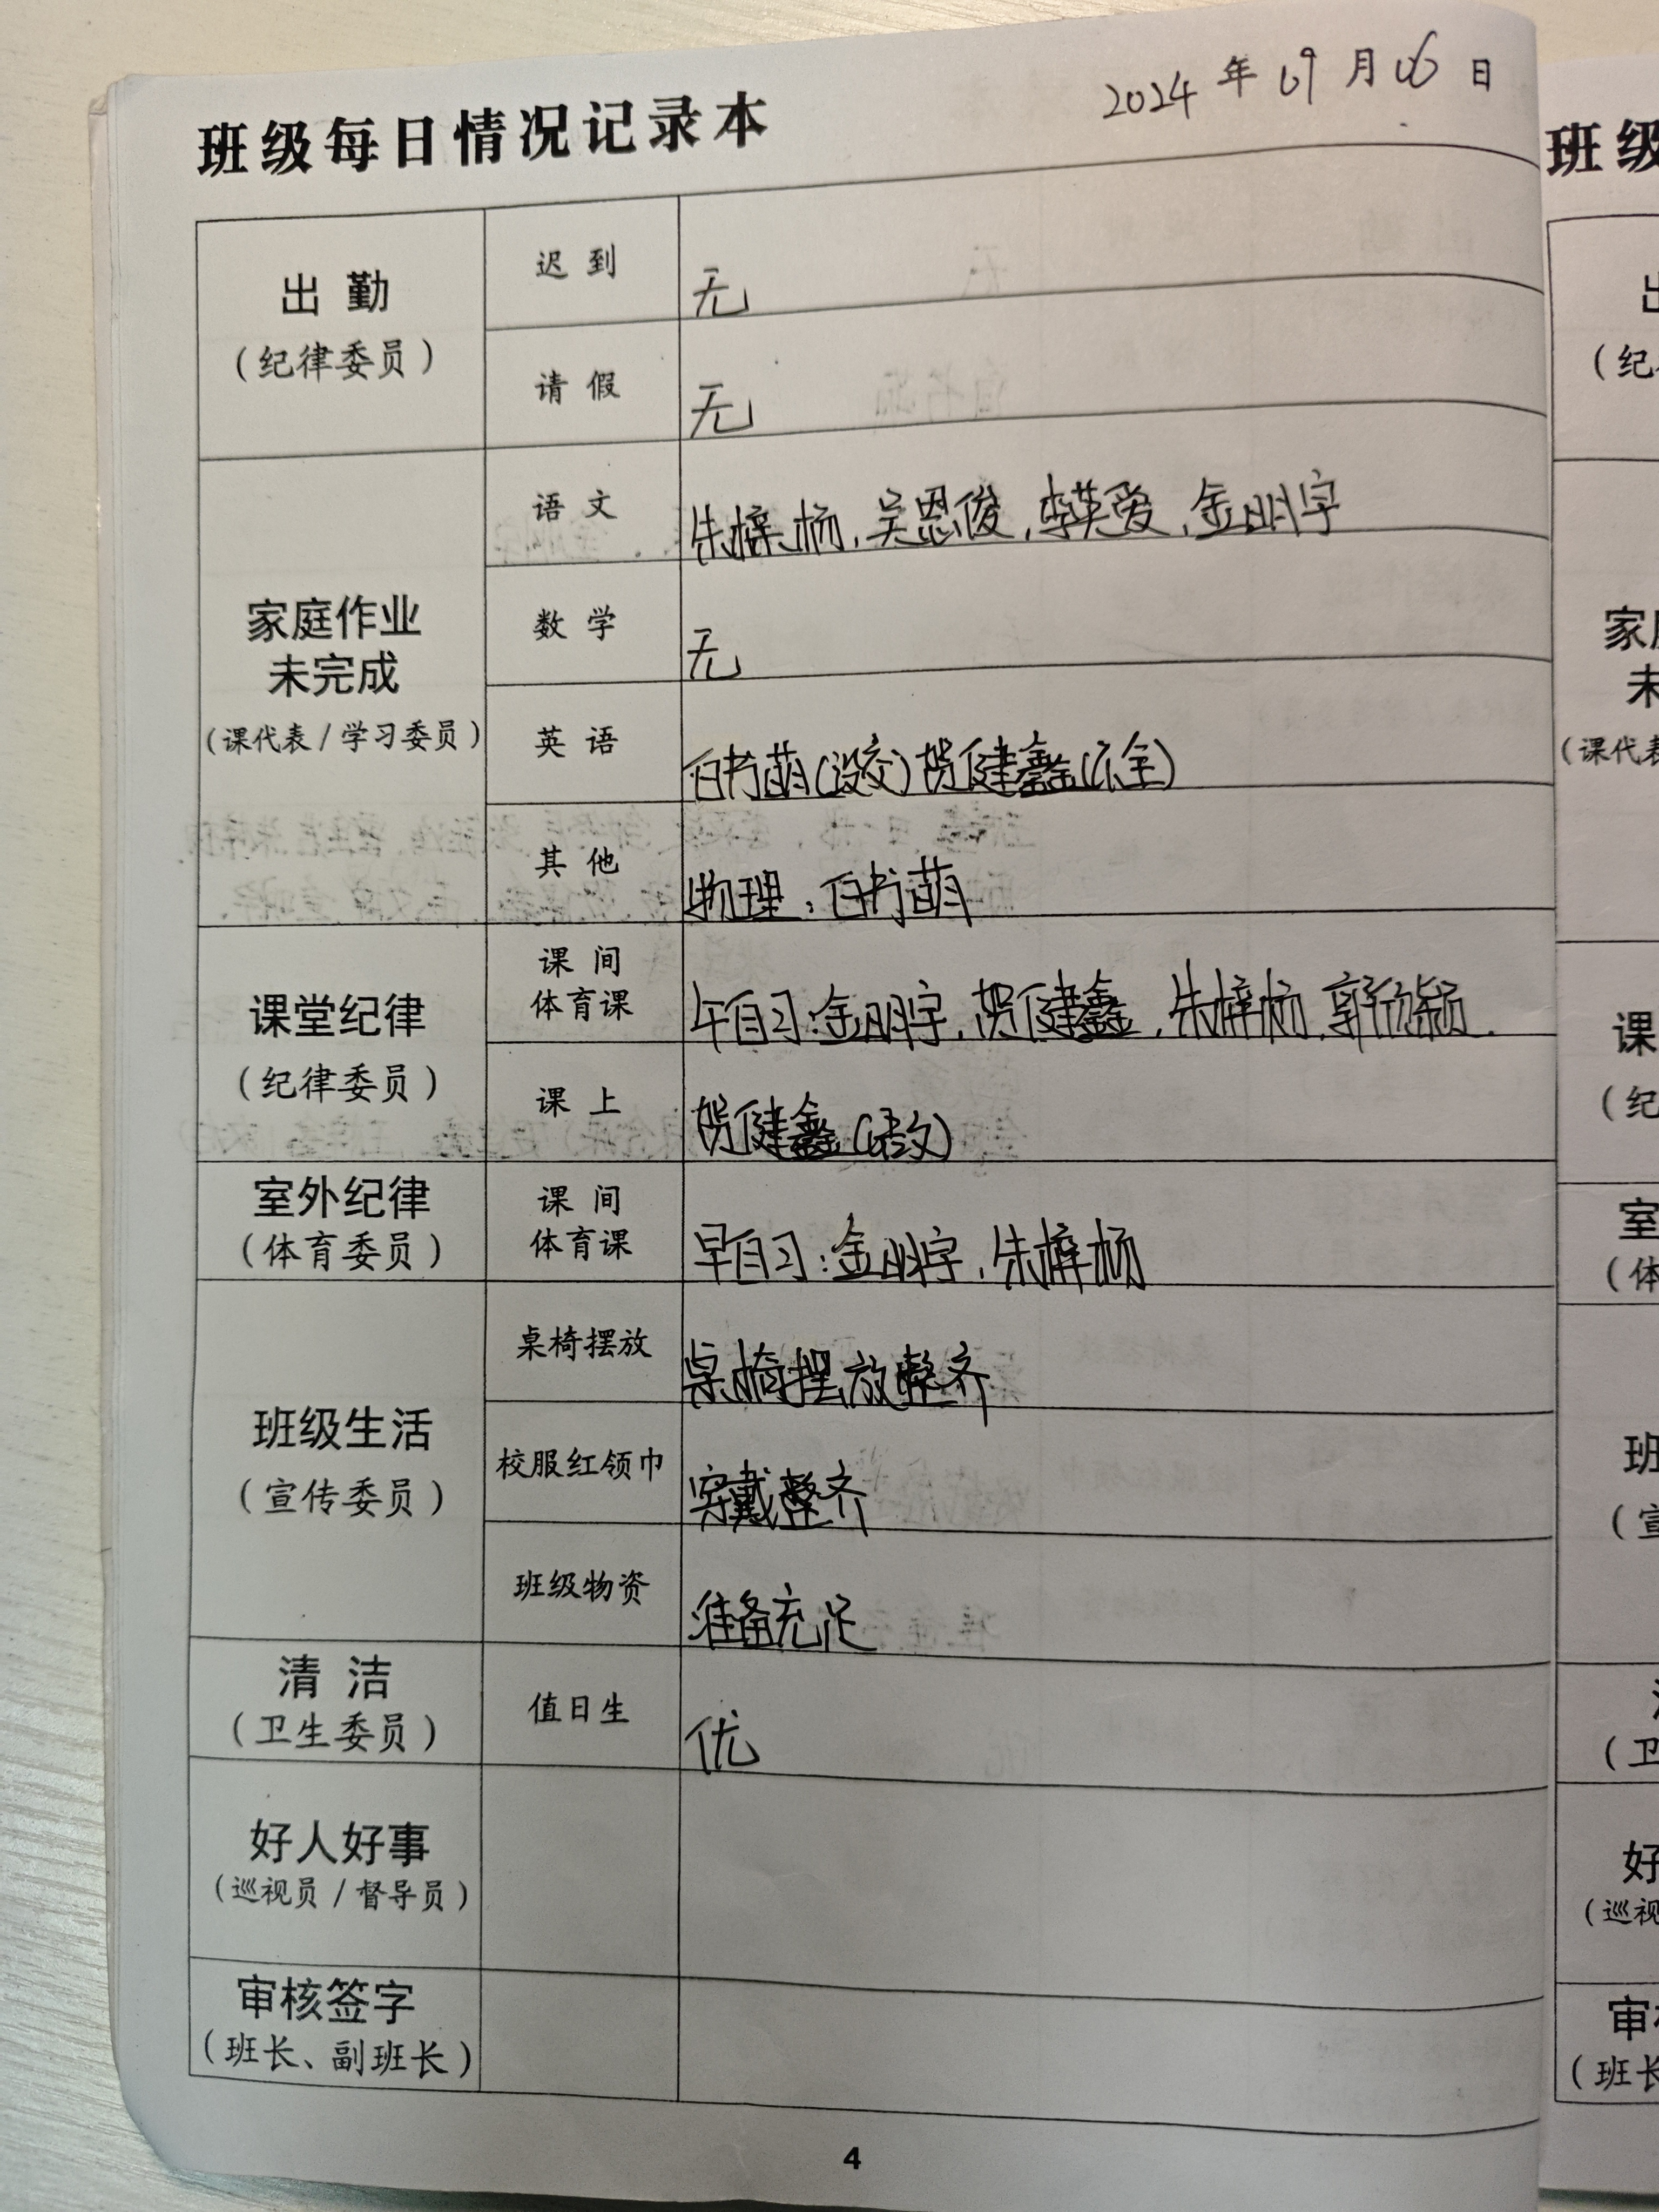 2024 年 09 月 06 日
班级每日情况记录本
出勤
(纪律委员)
迟到
无
请假
无
家庭作业
未完成
(课代表/学习委员)
语文
朱梓杨,吴恩俊,李英爱,金明宇
数学
无
英语
白书萌(没交)贺健鑫(不全)
其他
物理:白书萌
课堂纪律
(纪律委员)
课间
体育课
午自习:金明宇,贺健鑫,朱梓杨,郭欣颖.
课上
贺健鑫(语文)
室外纪律
(体育委员)
课间
体育课
早自习:金明宇,朱梓杨
班级生活
(宣传委员)
桌椅摆放
桌椅摆放整齐
校服红领巾
穿戴整齐
班级物资
准备充足
清洁
(卫生委员)
值日生
优
好人好事
(巡视员/督导员)
审核签字
(班长、副班长)
4
班级
出
(纪
家
未
(课代表
课
(纪
室
(体
班
(宣
(卫
好
(巡视
审
(班长